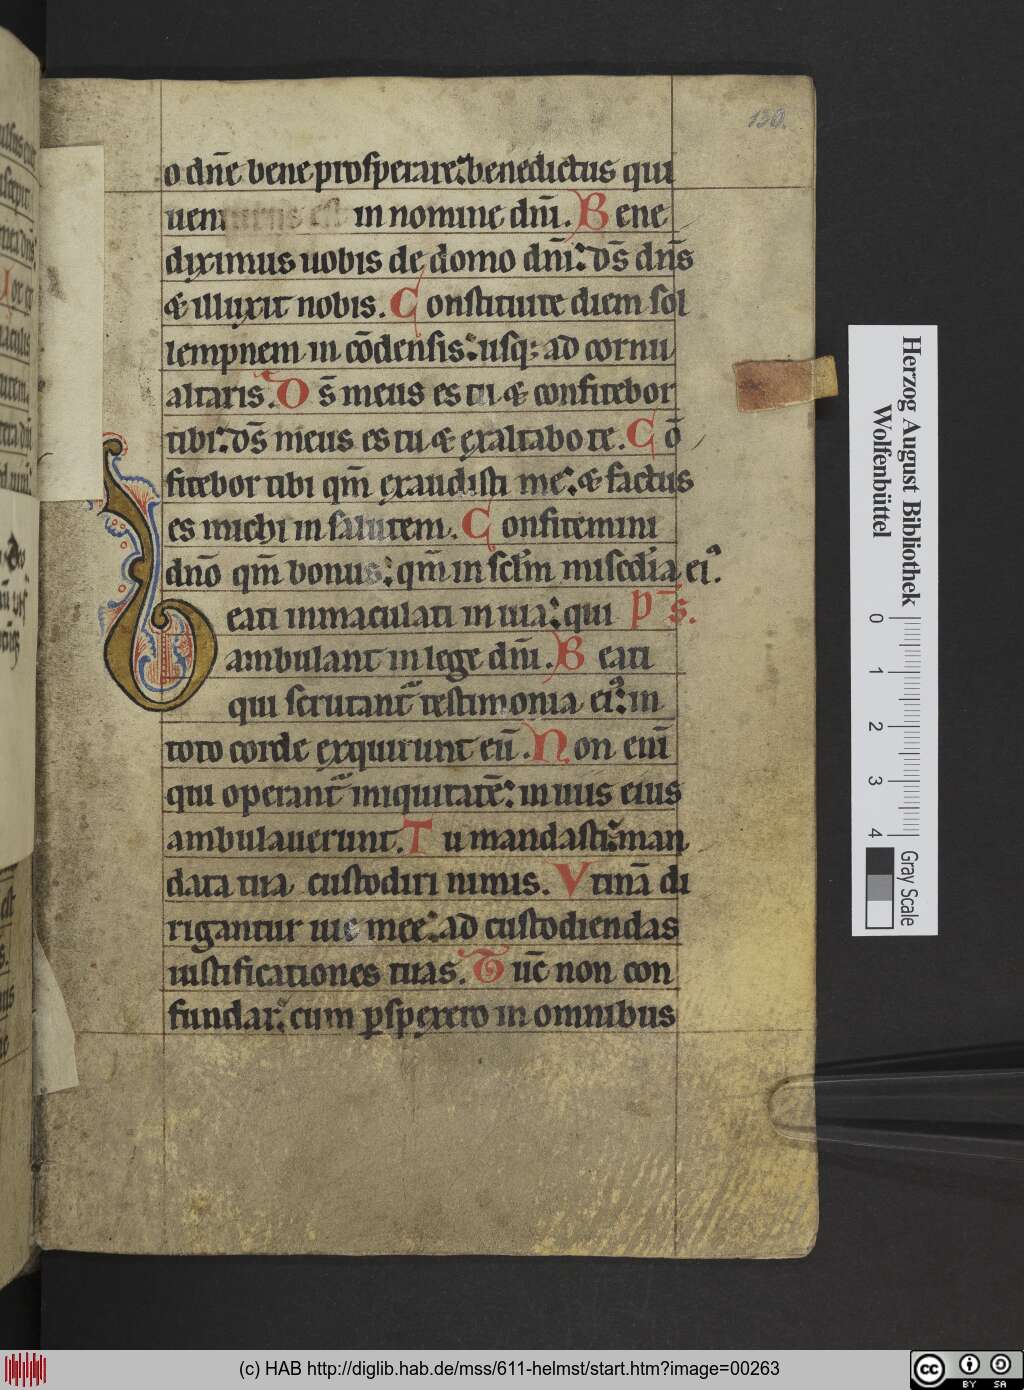 130.
o dn̄e bene prosperare: benedictus qui
uenturus est in nomine dnī. Bene
diximus uobis de domo dnī: ds̄ dn̄s
& illuxit nobis. Constituite diem sol
lempnem in cōdensis: usq; ad cornu
altaris. Ds̄ meus es tu & confitebor
tibi: ds̄ meus es tu & exaltabo te. Cō
fitebor tibi qm̄ exaudisti me: & factus
es michi in salutem. Confitemini
dnō qm̄ bonus: qm̄ in sclm̄ misedīa ei⁹.
Beati inmaculati in uia: qui p̄s.
ambulant in lege dnī. Beati
qui scrutant᷑ testimonia ei⁹: in
toto corde exquirunt eū. Non enī
qui operant᷑ iniquitatē: in uiis eius
ambulauerunt. Tu mandasti: man
data tua custodiri nimis. Vtinā di
rigantur uie mee: ad custodiendas
iustificationes tuas. Tūc non con
fundar: cum ꝑspexero in omnibus
Herzog August Bibliothek
Wolfenbüttel
0 1 2 3 4
Gray Scale
(c) HAB http://diglib.hab.de/mss/611-helmst/start.htm?image=00263
cc BY SA